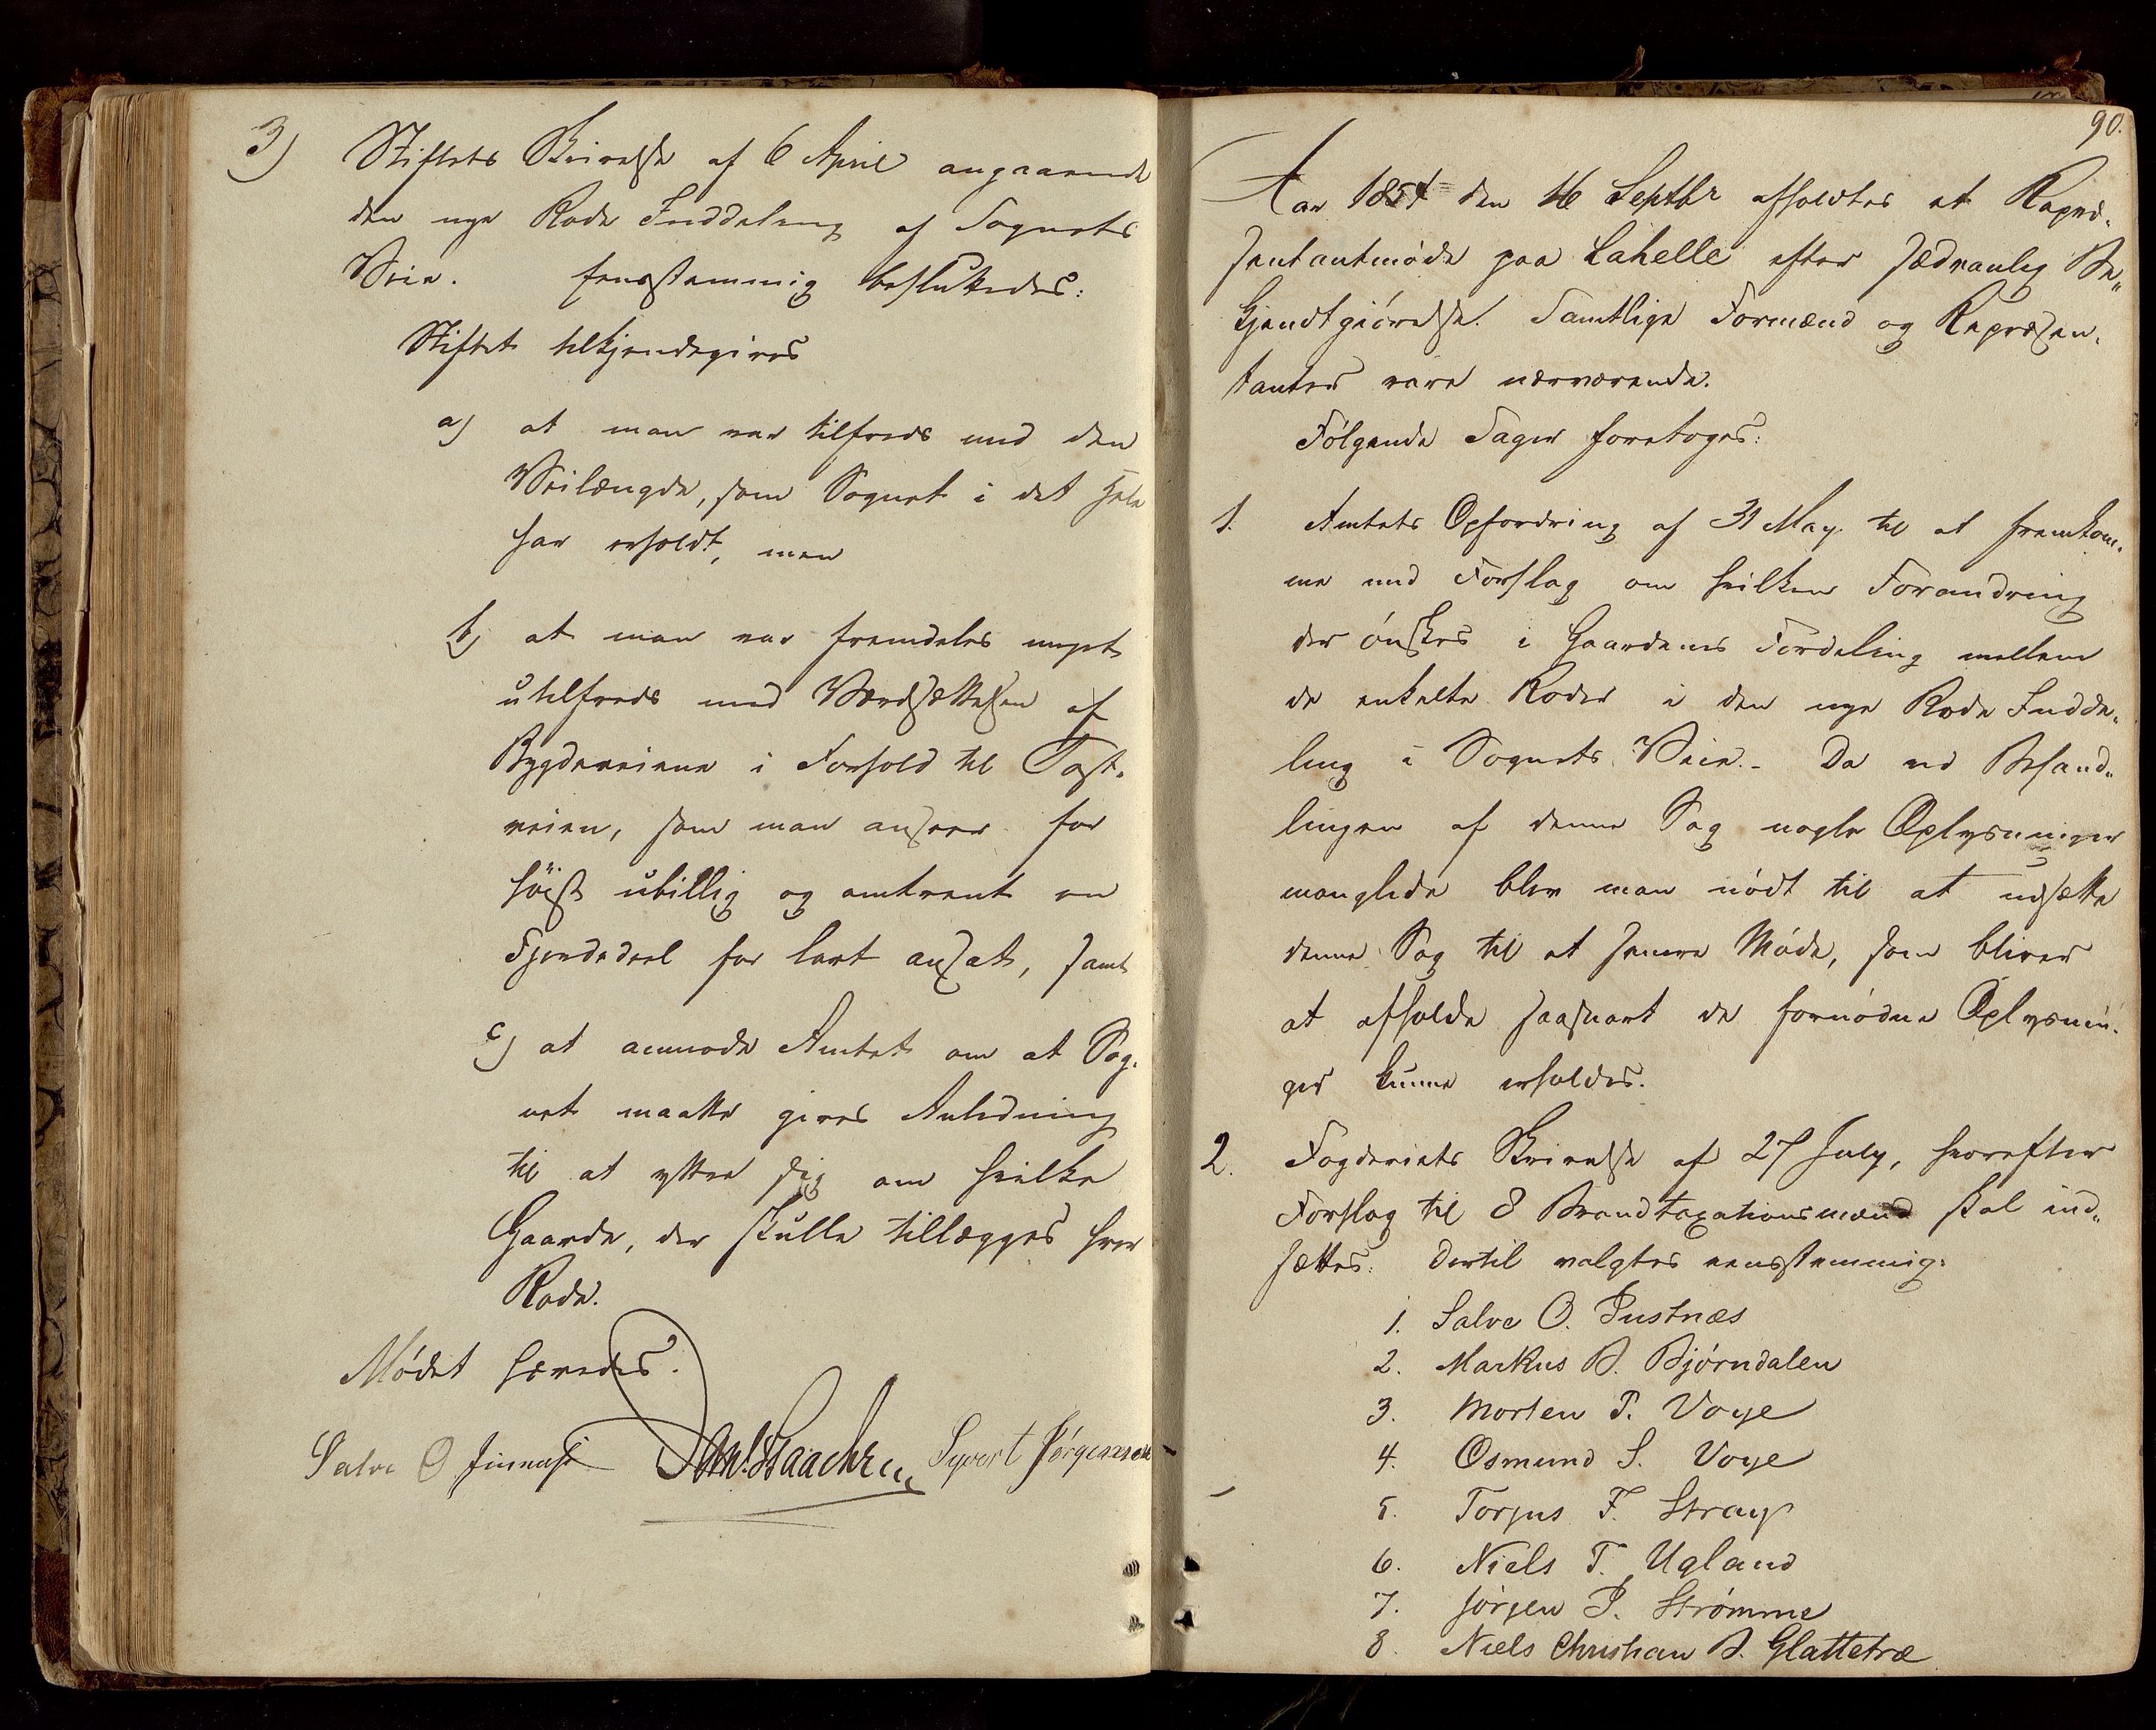 3) Stiftets Skrivelse af 6 April angaaende
den nye Rode Inddeling af Sognets
Veie. Eensstemmig besluttedes:
Stiftet tilkjendegives
a) at man var tilfreds med den
Veilængde, som Sognet i det Hele
har erholdt, men
b) at man var fremdeles meget
utilfreds med Værdsættelsen af
Bygdeveiene i Forhold til Post-
veien, som man anseer for
høist ubillig og omtrent en
Fjerdedeel for lavt ansat, samt
c) at anmode Amtet om at Sog-
net maatte gives Anledning
til at yttre sig om hvilke
Gaarde, der skulle tillægges hver
Rode.
Mødet hævedes.
Salve O Syvert Jørgensen
90.
Aar 1854 den 16 Septbr afholdtes et Repræ-
sentantmøde paa Lahelle efter sædvanlig Be-
kjendtgiørelse. Samtlige Formænd og Repræsen-
tanter vare nærværende.
Følgende Sager foretoges:
1. Amtets Opfordring af 31 May til at fremkom-
me med Forslag om hvilken Forandring
der ønskes i Gaardenes Fordeling mellem
de enkelte Roder i den nye Rode Indde-
ling i Sognets Veie. - Da ved Behand-
lingen af denne Sag nogle Oplysninger
manglede blev man nødt til at udsætte
denne Sag til et senere Møde, som bliver
at afholde saasnart de fornødne Oplysnin-
ger kunne erholdes.
2. Fogderiets Skrivelse af 27 July, hvorefter
Forslag til 8 Brandtaxationsmænd skal ind-
sættes. Dertil valgtes eensstemmig:
1. Salve O. Justnæs
2. Markus B. Bjørndalen
3. Morten T. Voye
4. Osmund S. Voye
5. Torjus F. Stray
6. Niels T. Ugland
7. Jörgen P. Strømme
8. Niels Christian B. Glattetræ